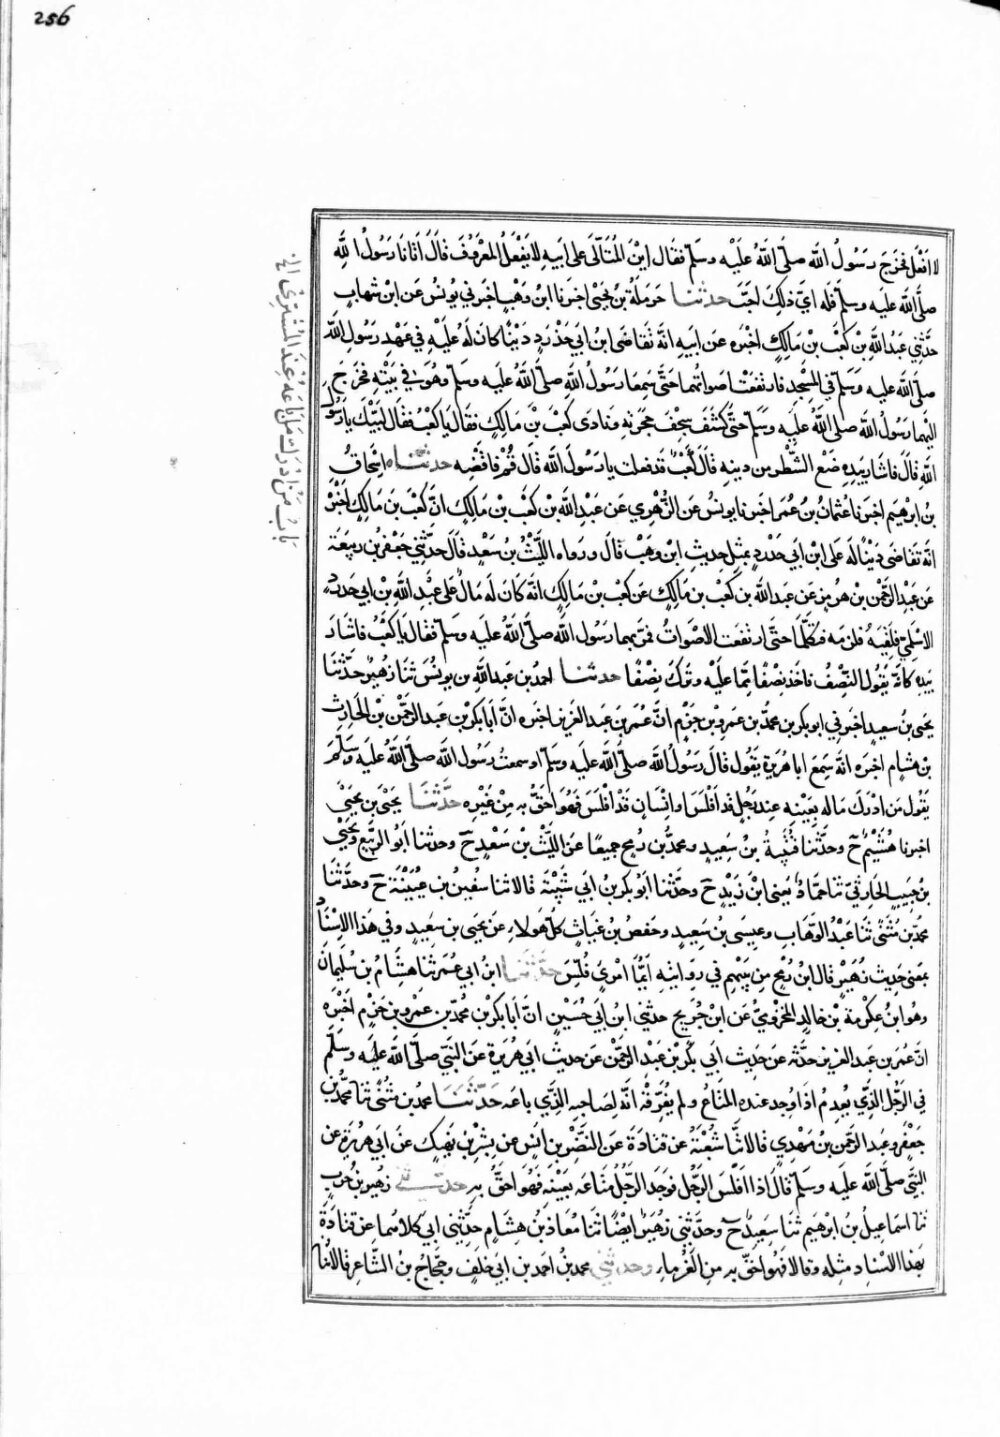 256
لا افعل فخرج رسول الله صلى الله عليه وسلم فقال اين المتالى على ابيه لا يفعل المعروف قال انا يا رسول الله
صلى الله عليه وسلم فله اي ذلك احب حدثنا حرملة بن يحيى اخبرنا ابن وهب اخبرني يونس عن ابن شهاب
حدثني عبد الله بن كعب بن مالك اخبره عن ابيه انه تقاضى ابن ابي حدرد دينا كان له عليه في عهد رسول الله
صلى الله عليه وسلم في المسجد فارتفعت اصواتهما حتى سمعها رسول الله صلى الله عليه وسلم وهو في بيته فخرج
اليهما رسول الله صلى الله عليه وسلم حتى كشف سجف حجرته ونادى كعب بن مالك فقال يا كعب فقال لبيك يا رسول
الله قال فاشار بيده ضع الشطر من دينه قال كعب قد فعلت يا رسول الله قال قم فاقضه حدثناه اسحاق
بن ابرهيم اخبرنا عثمان بن عمر اخبرنا يونس عن الزهري عن عبد الله بن كعب بن مالك ان كعب بن مالك اخبره
انه تقاضى دينا له على ابن ابي حدرد بمثل حديث ابن وهب قال ورواه الليث بن سعد قال حدثني جعفر بن ربيعة
عن عبد الرحمن بن هرمز عن عبد الله بن كعب بن مالك عن كعب بن مالك انه كان له مال على عبد الله بن ابي حدرد
الاسلمي فلقيه فلزمه فتكلما حتى ارتفعت الاصوات فمر بهما رسول الله صلى الله عليه وسلم فقال يا كعب فاشار
بيده كانه يقول النصف فاخذ نصفا مما عليه وترك نصفا حدثنا احمد بن عبد الله بن يونس ثنا زهير حدثنا
يحيى بن سعيد اخبرني ابو بكر بن محمد بن عمرو بن حزم ان عمر بن عبد العزيز اخبره ان ابا بكر بن عبد الرحمن بن الحارث
بن هشام اخبره انه سمع ابا هريرة يقول قال رسول الله صلى الله عليه وسلم او سمعت رسول الله صلى الله عليه وسلم
يقول من ادرك ماله بعينه عند رجل قد افلس او انسان قد افلس فهو احق به من غيره حدثنا يحيى بن يحيى
اخبرنا هشيم ح وحدثنا قتيبة بن سعيد ومحمد بن رمح جميعا عن الليث بن سعد ح وحدثنا ابو الربيع ويحيى
بن حبيب الحارثي ثنا حماد يعني ابن زيد ح وحدثنا ابو بكر بن ابي شيبة قالا ثنا سفين بن عيينة ح وحدثنا
محمد بن مثنى ثنا عبد الوهاب وعيسى بن سعيد وحفص بن غياث كل هولاء عن يحيى بن سعيد وفي هذا الاسناد
بمعنى حديث زهير قال ابن رمح من بينهم في روايته ايما امرئ فلس حدثنا ابن ابي عمر ثنا هشام بن سليمان
وهو ابن عكرمة بن خالد المخزومي عن ابن جريج حدثني ابن ابي حسين ان ابا بكر بن محمد بن عمرو بن حزم اخبره
ان عمر بن عبد العزيز حدثه عن حديث ابي بكر بن عبد الرحمن عن حديث ابي هريرة عن النبي صلى الله عليه وسلم
في الرجل الذي يعدم اذا وجد عنده المتاع ولم يفرقه انه لصاحبه الذي باعه حدثنا محمد بن مثنى ثنا محمد بن
جعفر وعبد الرحمن بن مهدي قالا ثنا شعبة عن قتادة عن النضر بن انس عن بشير بن نهيك عن ابي هريرة عن
النبي صلى الله عليه وسلم قال اذا افلس الرجل فوجد الرجل متاعه بعينه فهو احق به حدثني زهير بن حرب
ثنا اسماعيل بن ابرهيم ثنا سعيد ح وحدثني زهير ايضا ثنا معاذ بن هشام حدثني ابي كلاهما عن قتادة
بهذا الاسناد مثله وقالا فهو احق به من الغرماء وحدثني محمد بن احمد بن ابي خلف وحجاج بن الشاعر قالا ثنا
باب من ادرك ما باعه عند المشتري